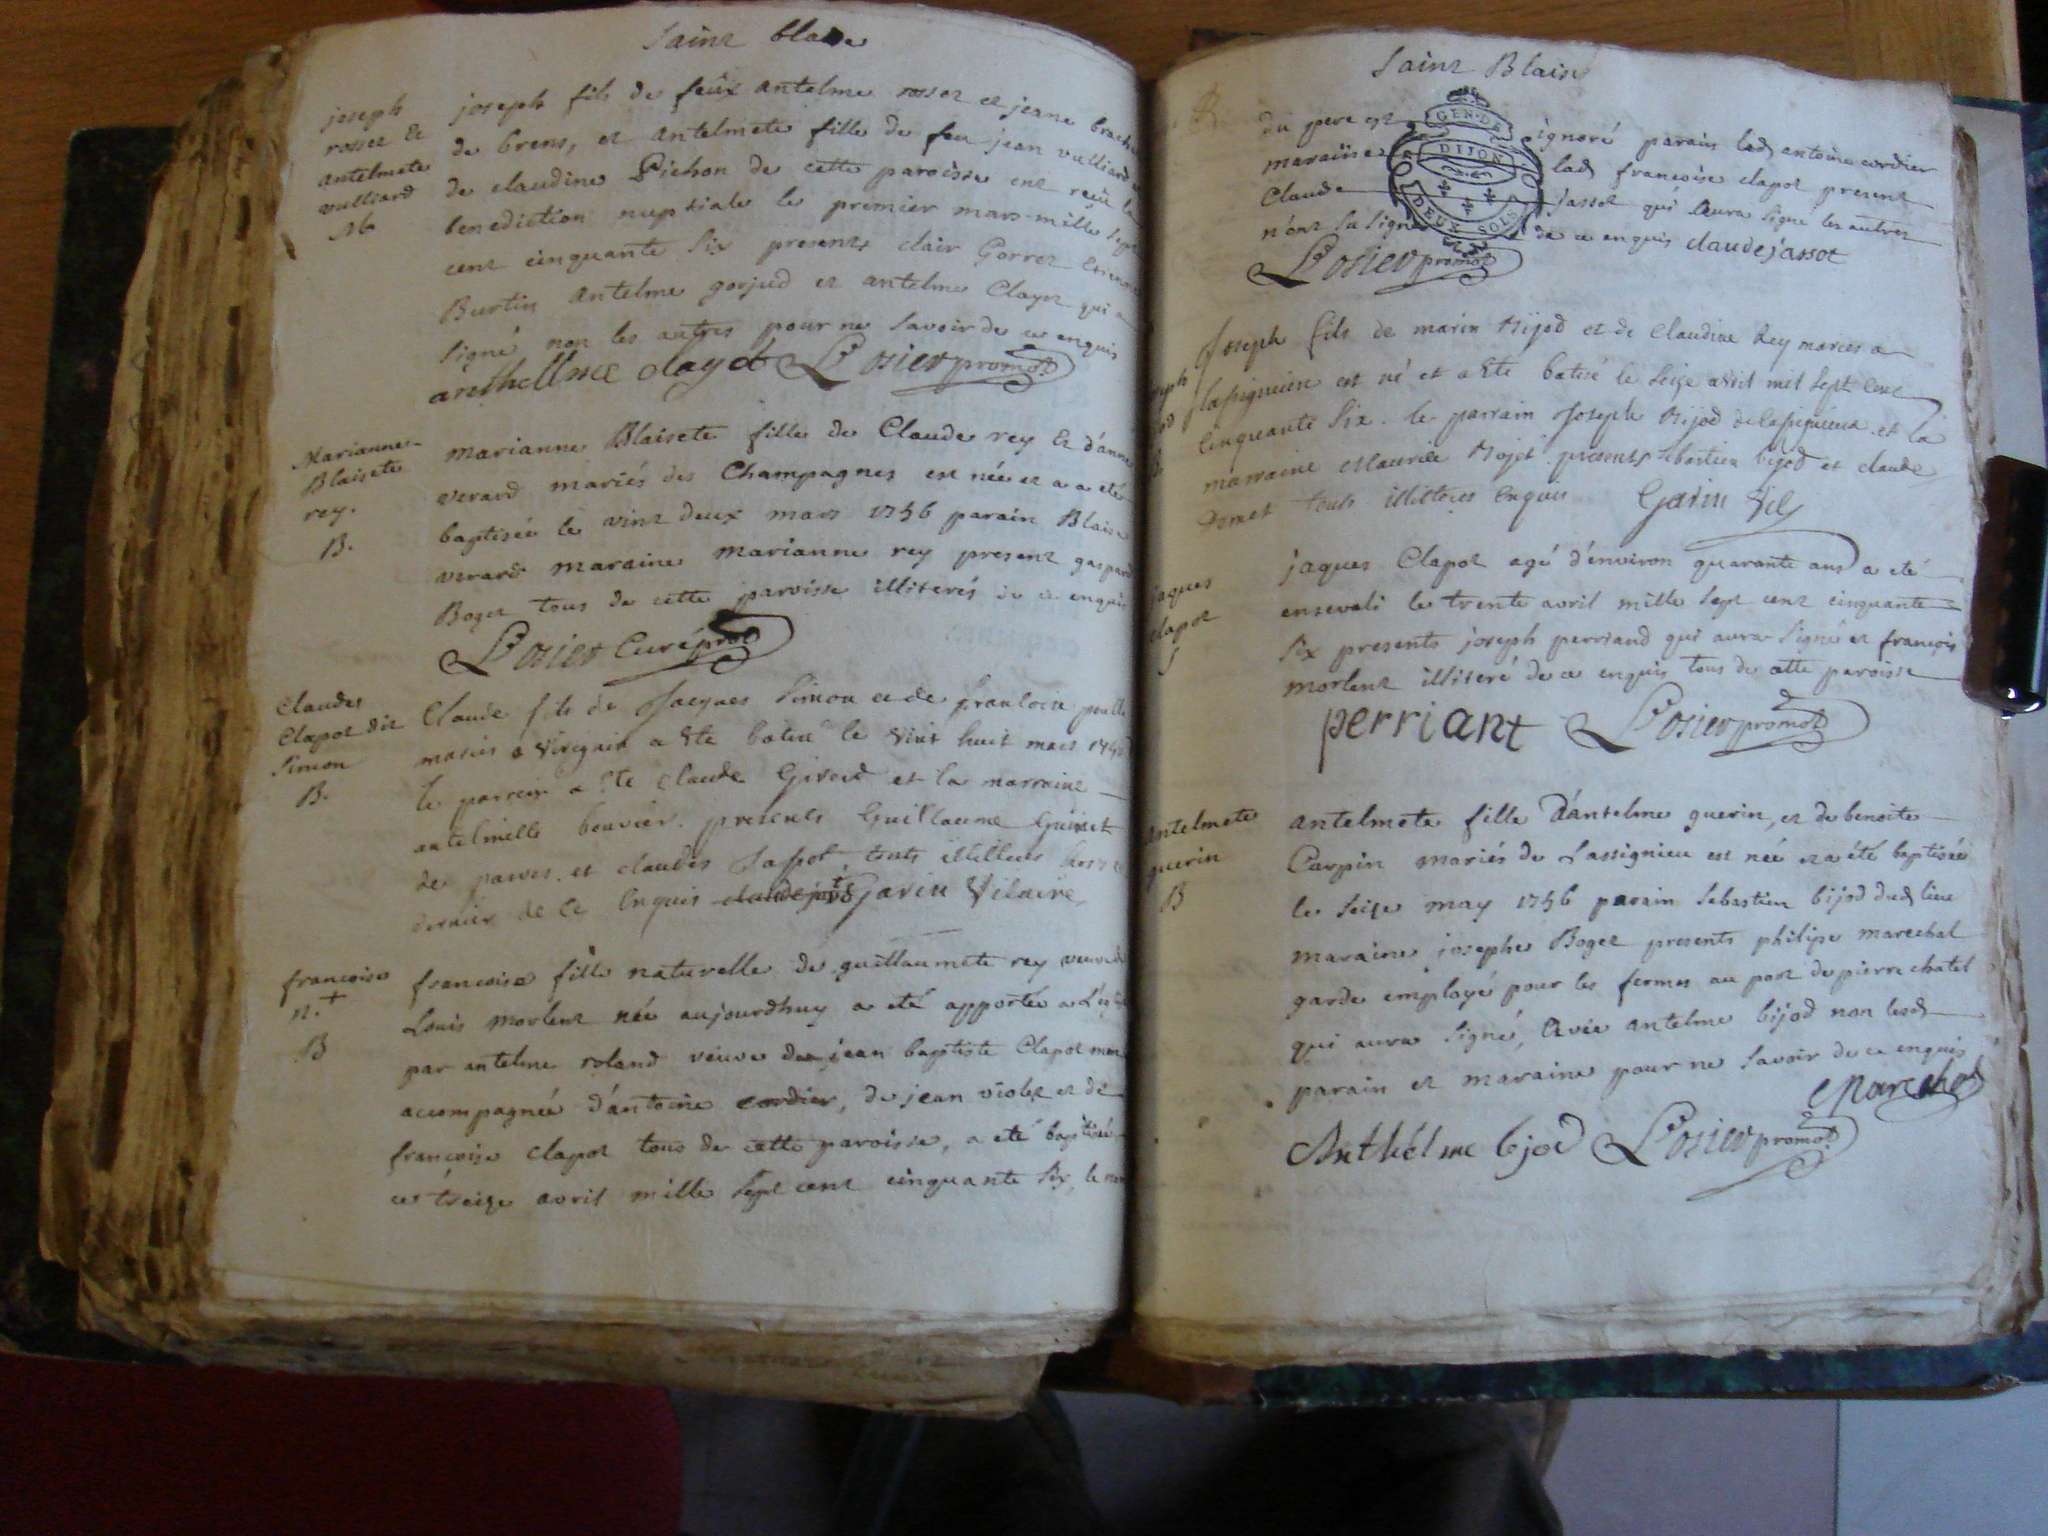 Saint blaise
joseph
rosset Et
antelmete
vulliard
M.
joseph fils de feûx antelme rosset et jeane brachet
de brens, et antelmete fille de feu jean vulliard et
de claudine Pichon de cette paroisse ont reçu la
benediction nuptiale le premier mars mille sept
cent cinquante six presents clair Gorrez Etienne
Burtin antelme gorjud et antelme Clayet qui a
signé non les autres pour ne savoir de ce enquis
anthellme clayet L'osier promot.
Marianne
Blaisete
rey.
B.
marianne Blaisete fille de Claude rey Et d'anne
verard mariés des Champagnes est née et a eté
baptisée le vint deux mars 1756 parain Blaise
verard maraine marianne rey present gaspard
Boget tous de cette paroisse illiterés de ce enquis
L'osier Curé prot
Claudes
Clapot dit
Simon
B.
Claude fils de Jacques Simon et de francoise
mariés a Virignin a Ete batisé le Vint huit mars 1756
le parrein a Ete Claude Girod et la marraine
antelmette bouvier. presents Guillaume Guinet
de parves. et claudes Jassot, touts illitteres hors ce
dernier de ce Enquis Garin Vicaire
francoise
n.+
B
francoise fille naturelle de guillaumete rey veuve de
Louis morlent née aujourdhuy a eté apportée a L'eglise
par antelme roland veuve de jean baptiste Clapot
accompagnée d'antoine cordier, de jean violet et de
francoise clapot tous de cette paroisse, a eté baptisée
ce treize avril mille sept cent cinquante six, le nom
Saint Blaise
du pere est ignoré parain led antoine cordier
maraine lad francoise clapot present
Claude Jassot qui aura signé les autres
n'ont su signer de ce enquis claude jassot
GEN. DE
DIJON
DEUX SOLS
L'osier promot
Joseph fils de marin Bijod et de Claudine Rey mariés a
lassignieu est né et a Ete batisé le seize avril mil sept cent
Cinquante Six. le parrain Joseph Bijod de lassignieux et la
marraine Maurise Bojet. presents sebastien bijod et claude
touts illitteres Enquis Garin Vic
jaques
clapot
S
jaques Clapot agé d'environ quarante ans a eté
enseveli le trente avril mille sept cent cinquante
six presents joseph perriand qui aura signé et françois
morlent illiteré de ce enquis tous de cette paroisse
perriant L'osier promot
antelmete
guerin
B
antelmete fille d'antelme guerin, et de benoite
Carpin mariés de Lassignieu est née et a été baptisée
le seize may 1756 parain sebastien bijod dud lieu
maraine josephe Boget presents philipe marechal
garde employé pour les fermes au port de pierre chatel
qui aura signé, avec antelme bijod non lesd
parain et maraine pour ne savoir de ce enquis
Marechal
Anthelme bjod L'osier promot